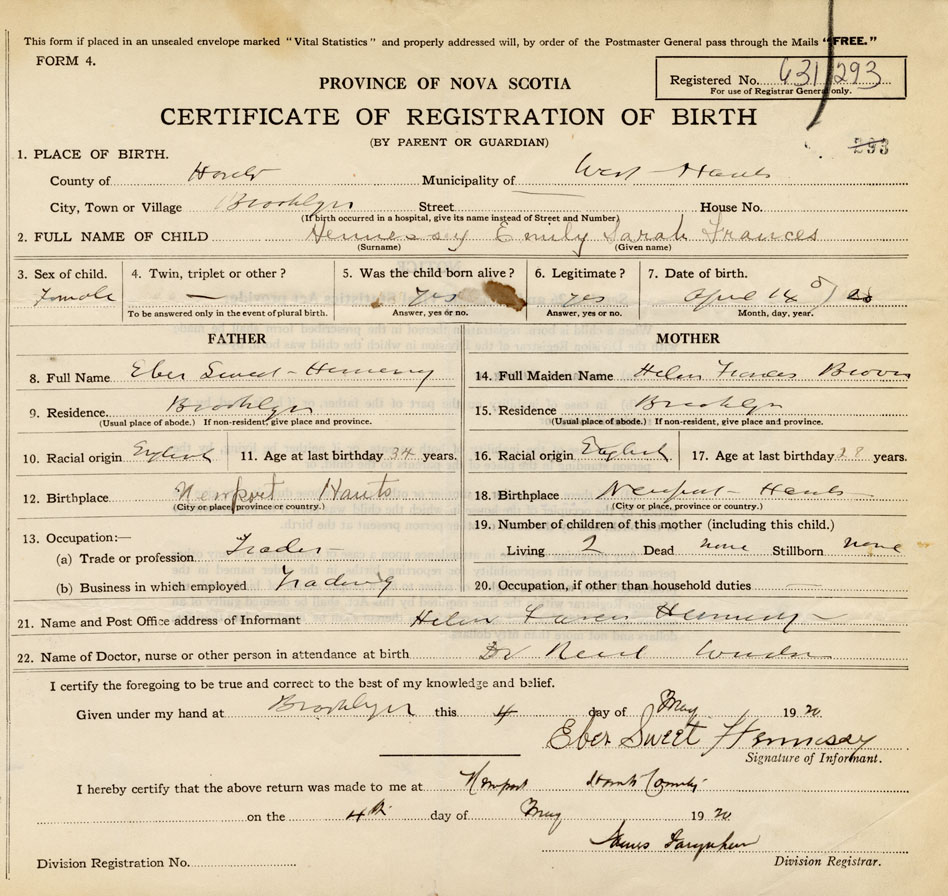 This form if placed in an unsealed envelope marked "Vital Statistics" and properly addressed will, by order of the Postmaster General pass through the Mails "FREE."
FORM 4.
Registered No. 631293
For use of Registrar General only.
PROVINCE OF NOVA SCOTIA
CERTIFICATE OF REGISTRATION OF BIRTH
(BY PARENT OR GUARDIAN)
293
1. PLACE OF BIRTH.
County of Hants Municipality of West Hants
City, Town or Village Brooklyn Street House No.
(If birth occurred in a hospital, give its name instead of Street and Number)
2. FULL NAME OF CHILD Hennessey Emily Sarah Frances
(Surname) (Given name)
3. Sex of child. 4. Twin, triplet or other? 5. Was the child born alive? 6. Legitimate? 7. Date of birth.
Female — yes yes April 14
To be answered only in the event of plural birth. Answer, yes or no. Answer, yes or no. Month, day, year.
FATHER MOTHER
8. Full Name Eber Sweet Hennessy 14. Full Maiden Name Helen Frances Brown
9. Residence. Brooklyn 15. Residence Brooklyn
(Usual place of abode.) If non-resident, give place and province. (Usual place of abode.) If non-resident, give place and province.
10. Racial origin English 11. Age at last birthday 34 years. 16. Racial origin English 17. Age at last birthday 28 years.
12. Birthplace Newport Hants 18. Birthplace Newport Hants
(City or place, province or country.) (City or place, province or country.)
13. Occupation:— 19. Number of children of this mother (including this child.)
(a) Trade or profession Trader Living 2 Dead none Stillborn none
(b) Business in which employed Trading 20. Occupation, if other than household duties —
21. Name and Post Office address of Informant Helen Hennessy
22. Name of Doctor, nurse or other person in attendance at birth Dr Windsor
I certify the foregoing to be true and correct to the best of my knowledge and belief.
Given under my hand at Brooklyn this 4 day of May 1920
Eber Sweet Hennessy
Signature of Informant.
I hereby certify that the above return was made to me at Newport Hants County
on the 4th day of May 1920
James
Division Registration No. Division Registrar.